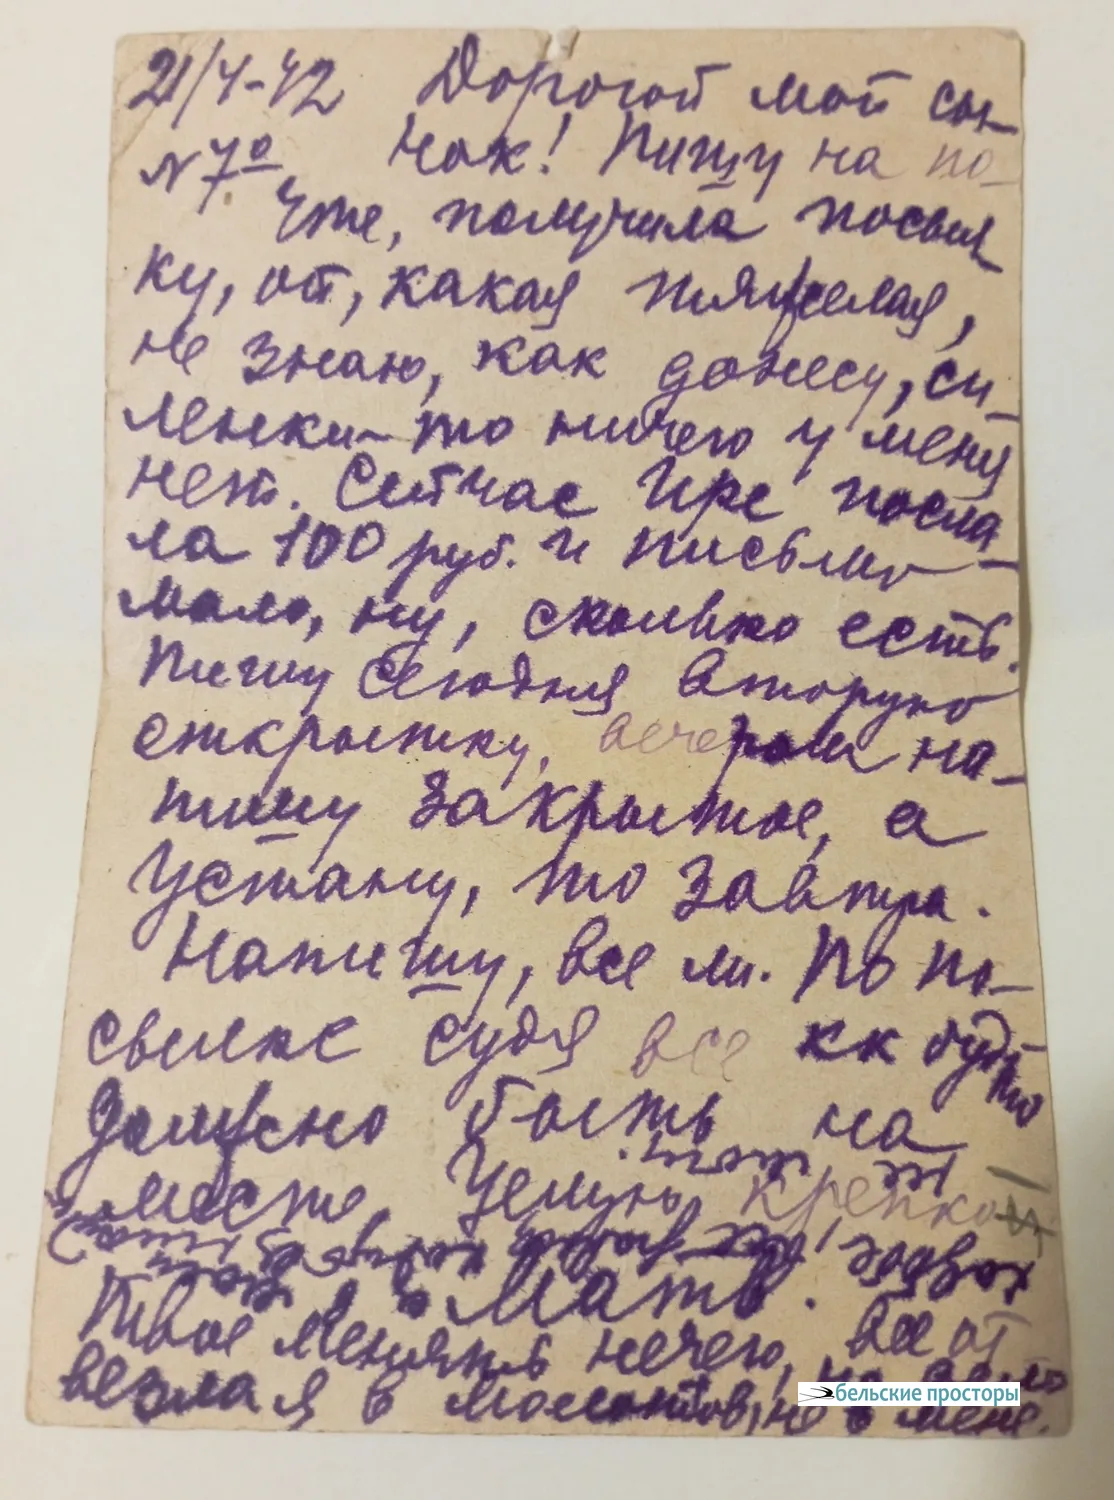 21/4-42 Дорогой мой сы-
N 7º нок! Пишу на по-
чте, получила посыл-
ку, ой, какая тяжелая,
не знаю, как донесу, си-
ленки-то ничего у меня
нет. Сейчас Ире посла-
ла 100 руб. и письмо
мало, ну, сколько есть.
Пишу сегодня вторую
открытку, вечером на-
пишу закрытое, а
устану, то завтра.
Напишу, все ли. По по-
сылке судя все кк будто
должно быть на
месте. Целую крепко
Мать.
Твое менять нечего, все от
везла я в